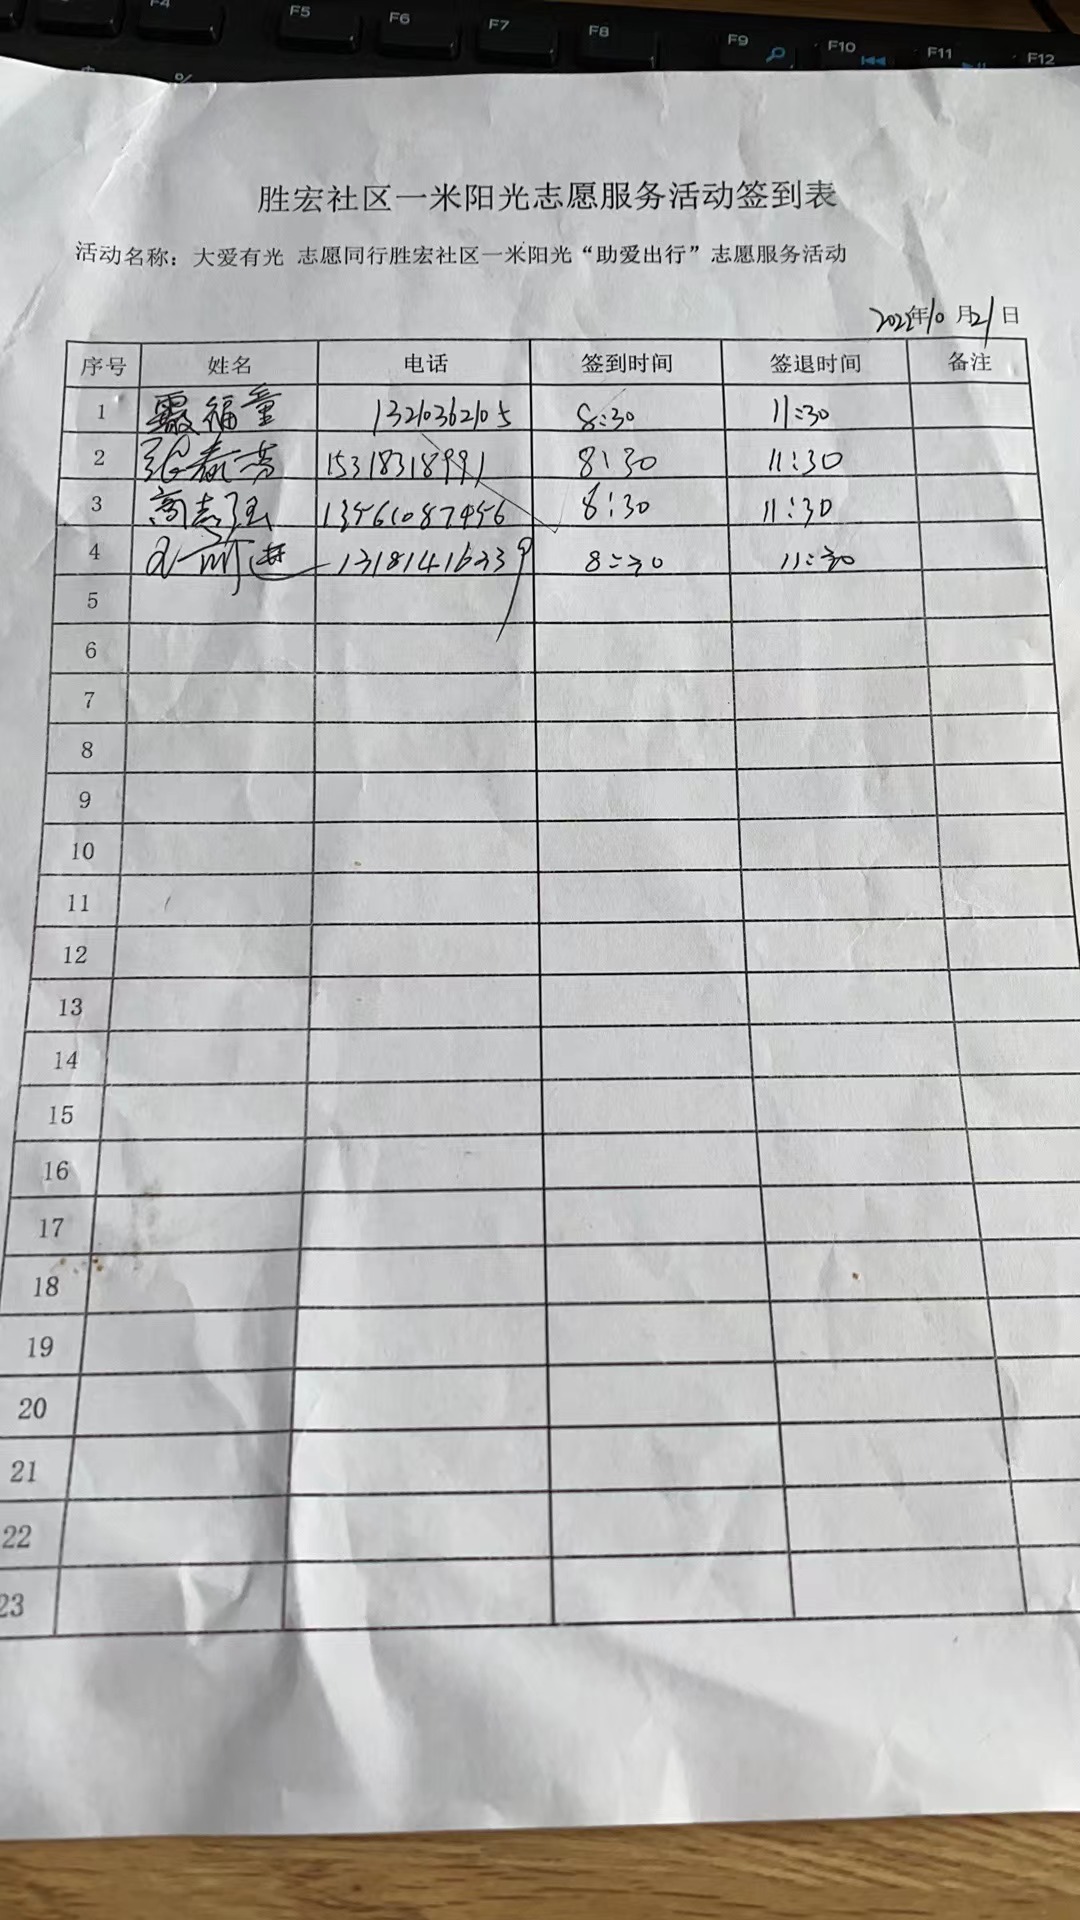 F4 F5 F6 F7 F8 F9 F10 F11 F12
%
胜宏社区一米阳光志愿服务活动签到表
活动名称：大爱有光 志愿同行胜宏社区一米阳光“助爱出行”志愿服务活动
2022年10月21日
序号 姓名 电话 签到时间 签退时间 备注
1 福童 13210362105 8:30 11:30
2 张春芳 15318318991 8:30 11:30
3 高志强 13561087456 8:30 11:30
4 前进 13181416339 8:30 11:30
5
6
7
8
9
10
11
12
13
14
15
16
17
18
19
20
21
22
23